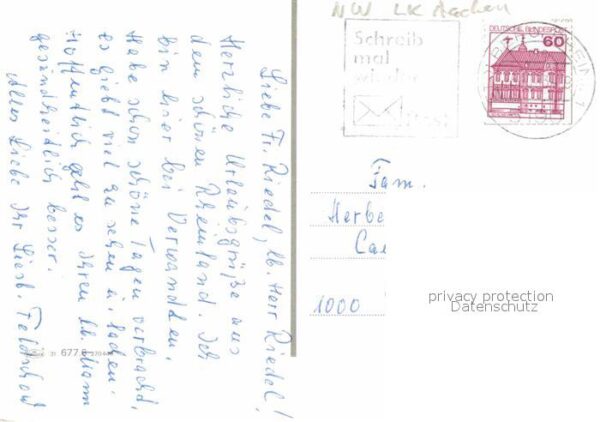 Liebe Fr. Riedel, lb. Herr Riedel!
Herzliche Urlaubsgrüße aus
dem schönen Rheinland. Ich
bin hier bei Verwandten.
Habe schon schöne Tagen verbracht,
es giebt viel zu sehen u.
Hoffentlich geht es Ihren lb. Mann
gesundheitlich besser.
Alles Liebe Ihr Liesb. Feldschau
677.8
NW LK Aachen
Schreib
mal
wieder
Post
DEUTSCHE BUNDESPOST
60
Fam.
Herbe
Ca
1000
privacy protection
Datenschutz